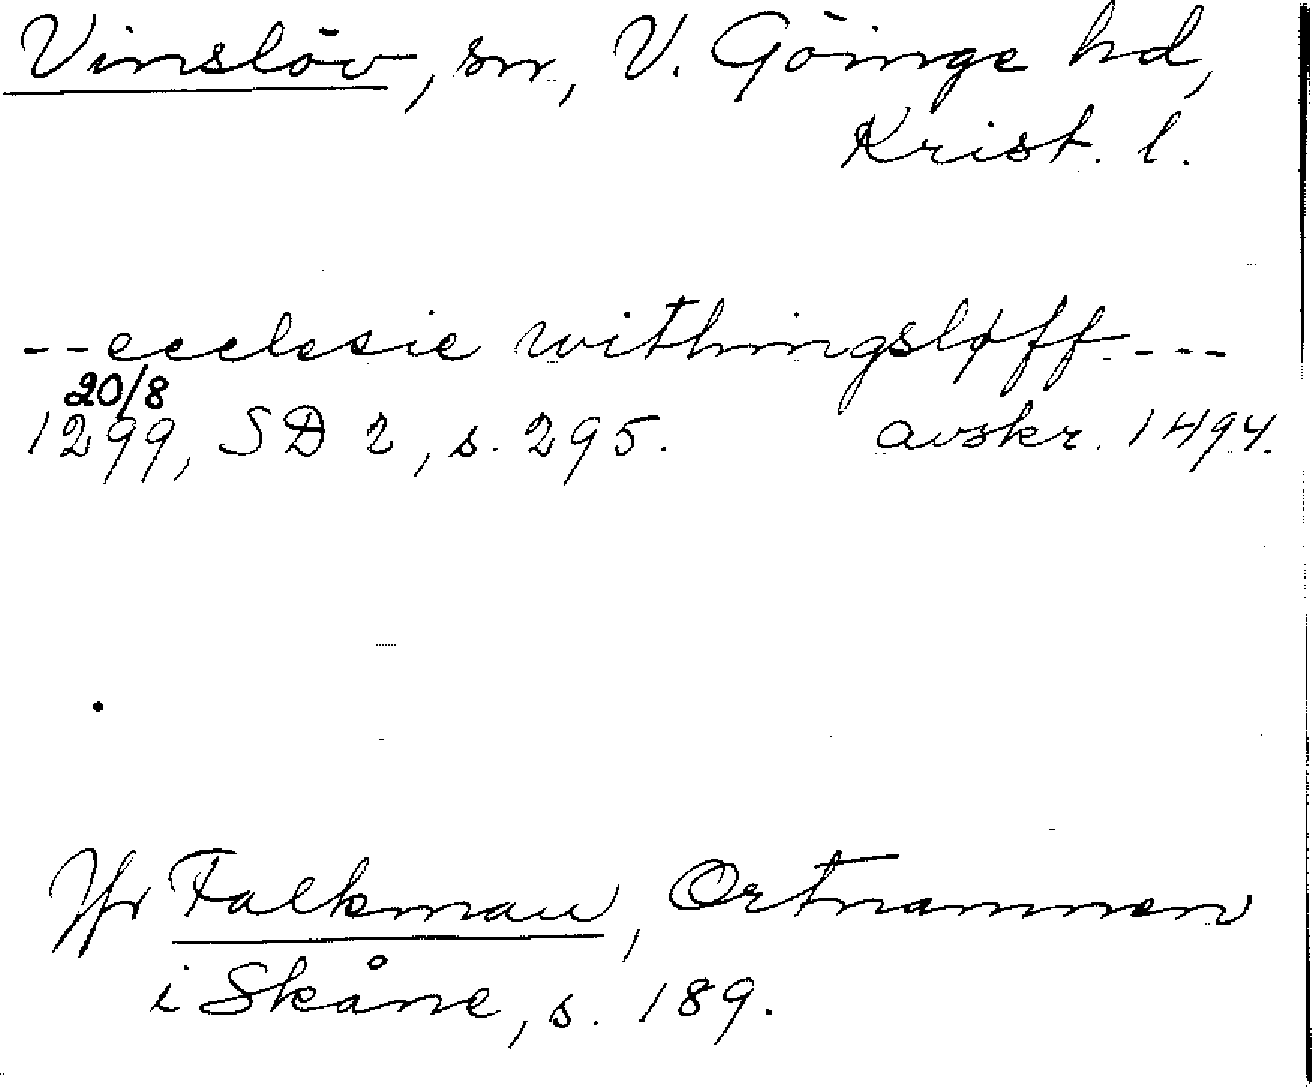 Vinslöv, sn, V. Göinge hd,
Krist. l.
--ecclesie withingsløff---
20/8
1299, SD 2, s. 295. avskr. 1494.
Jfr Falkman, Ortnamnen
i Skåne, s. 189.